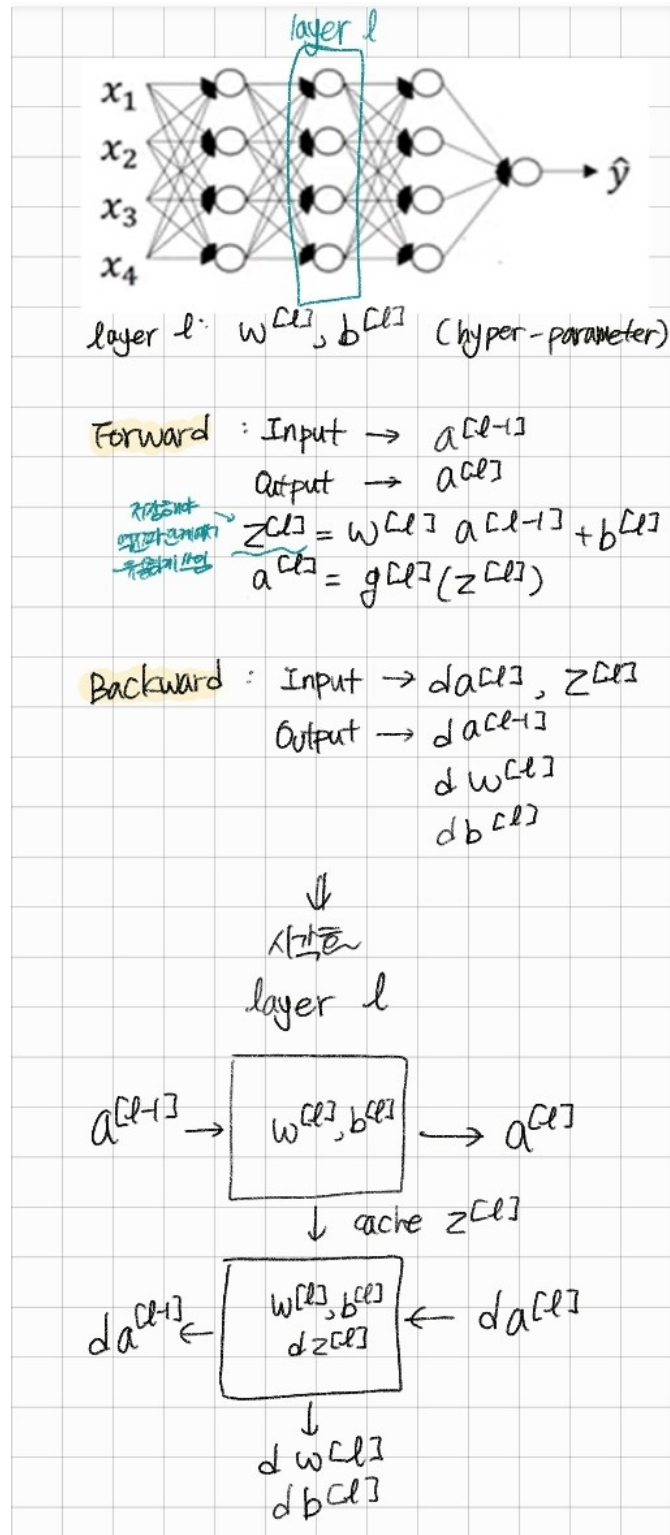 layer l
x₁
x₂
x₃
x₄
ŷ
layer l: w[l], b[l] (hyper-parameter)
Forward : Input → a[l-1]
Output → a[l]
저장해야
역전파 단계에서
유용하게 쓰임
z[l] = w[l] a[l-1] + b[l]
a[l] = g[l](z[l])
Backward : Input → da[l], z[l]
Output → da[l-1]
dw[l]
db[l]
⇓
시각화
layer l
a[l-1] → w[l], b[l] → a[l]
↓ cache z[l]
da[l-1] ← w[l], b[l] ← da[l]
dz[l]
↓
dw[l]
db[l]